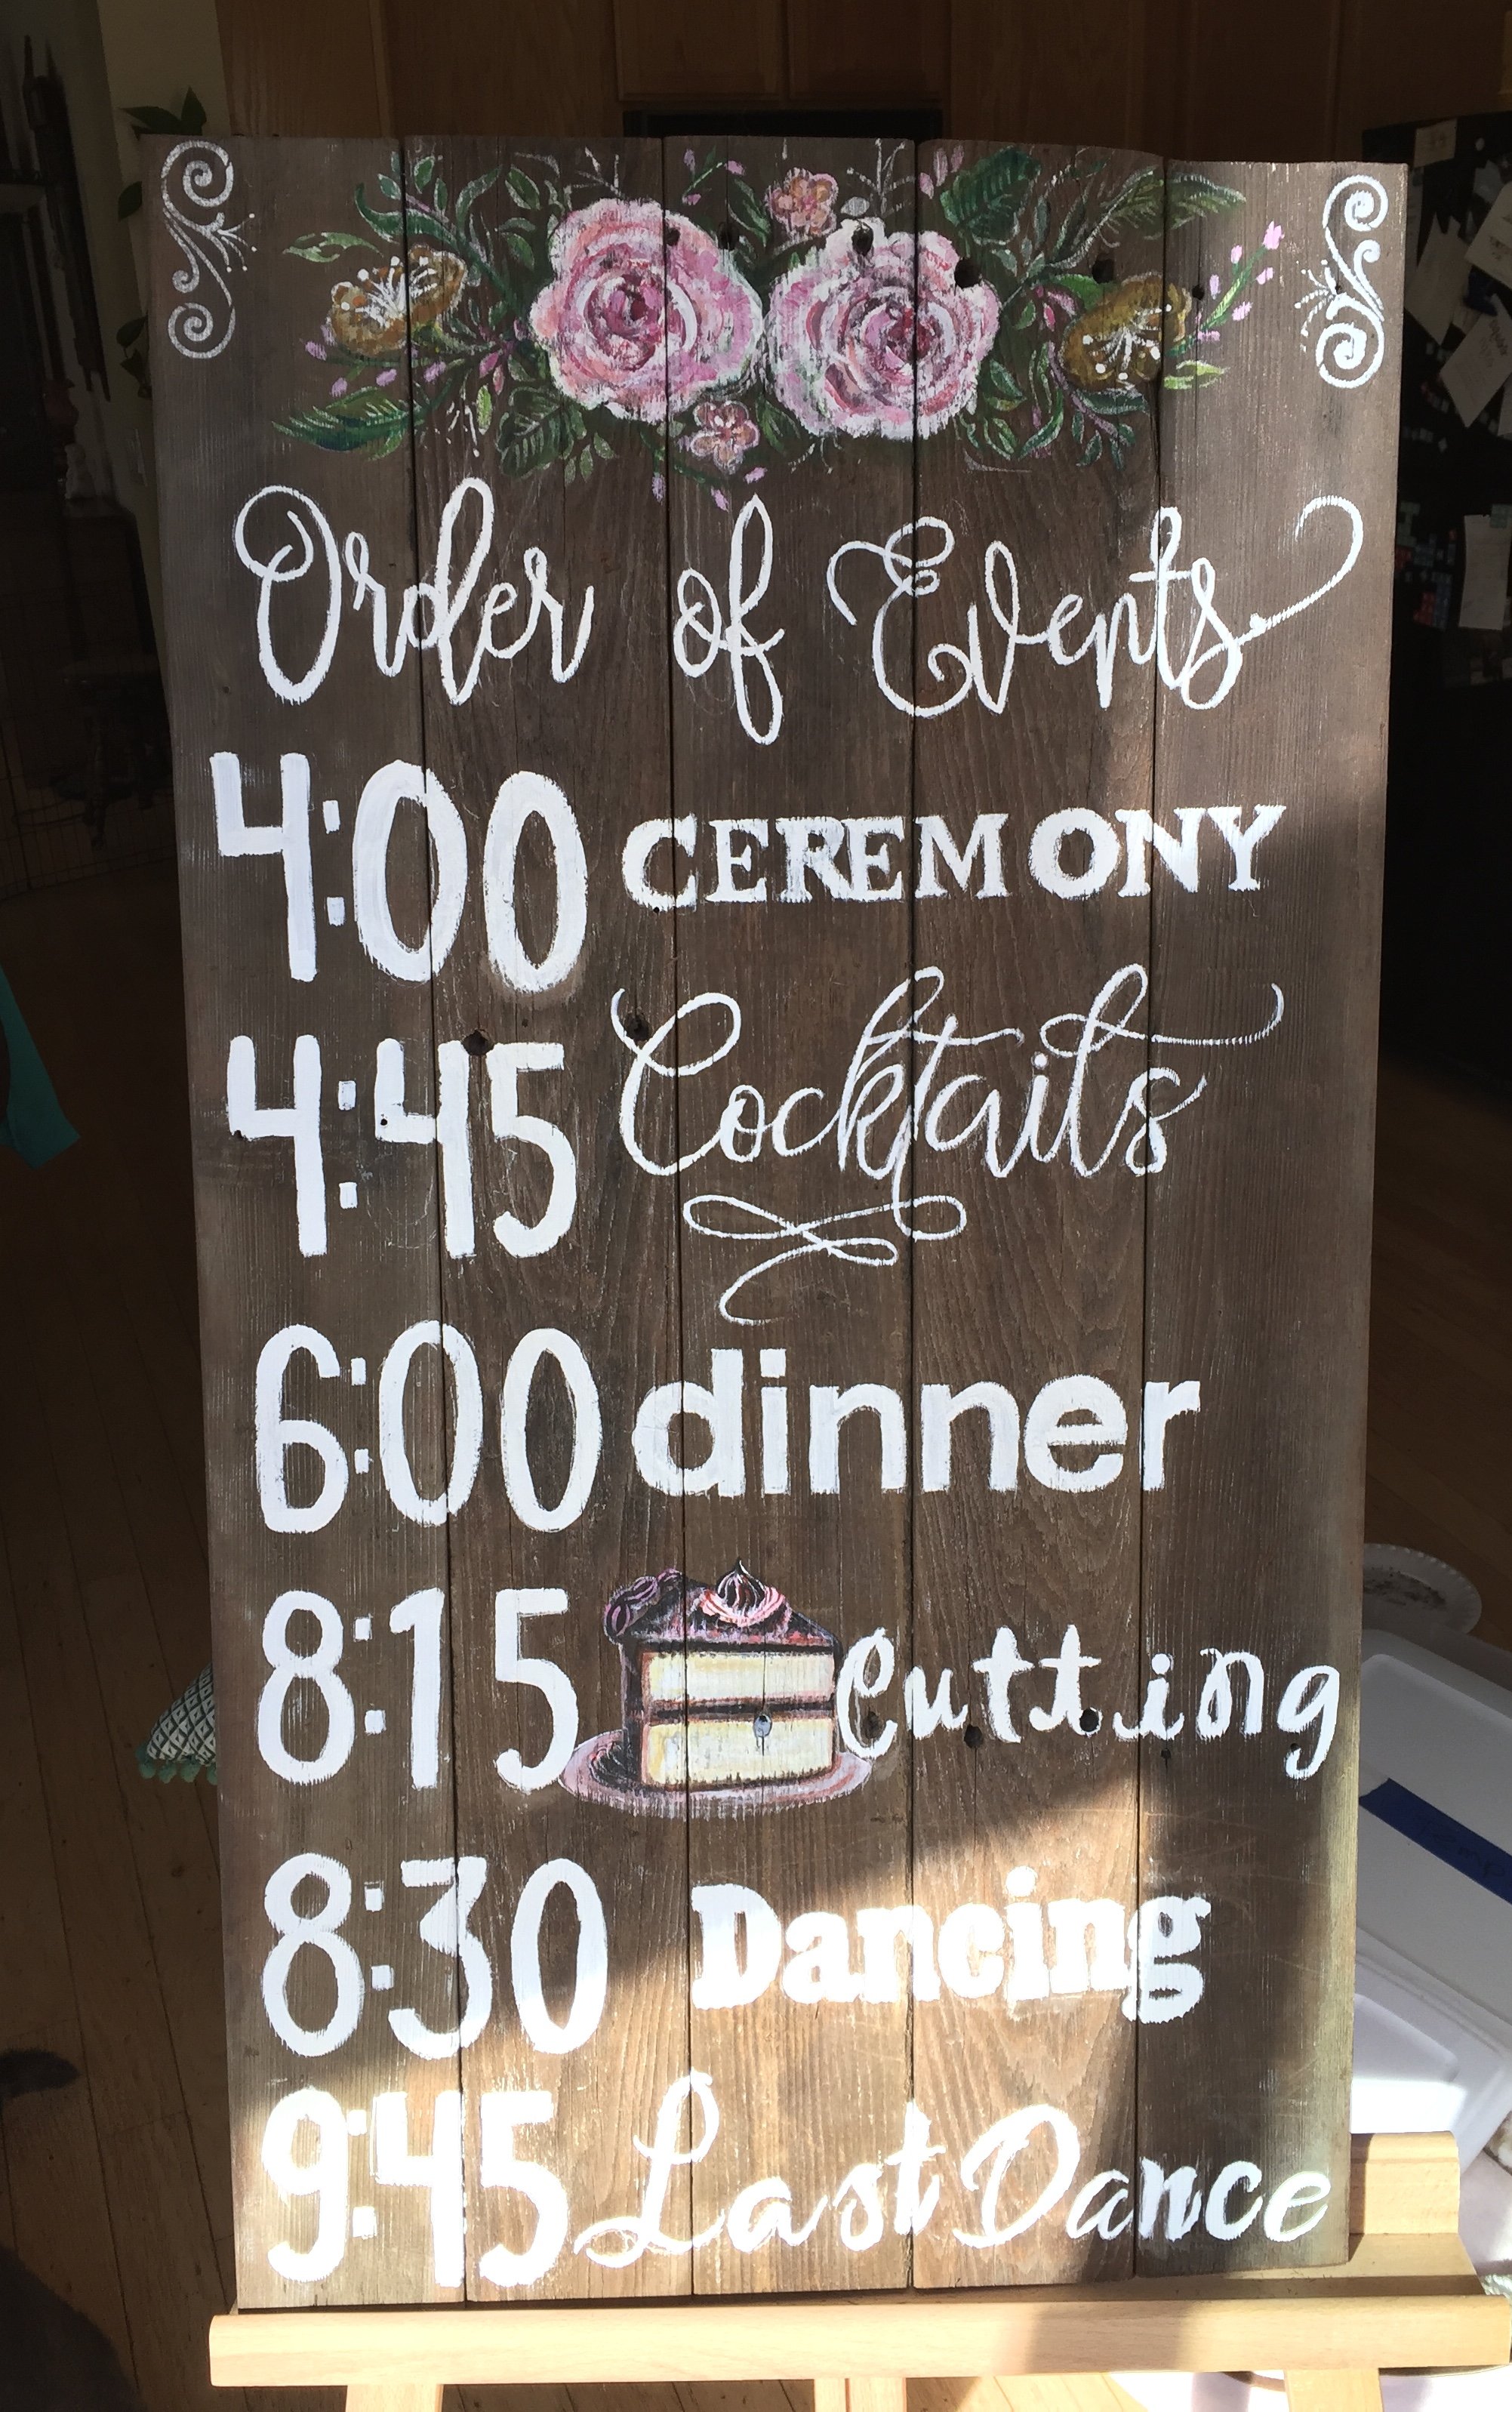 Order of Events
4:00 CEREMONY
4:45 Cocktails
6:00 dinner
8:15 Cutting
8:30 Dancing
9:45 Last Dance